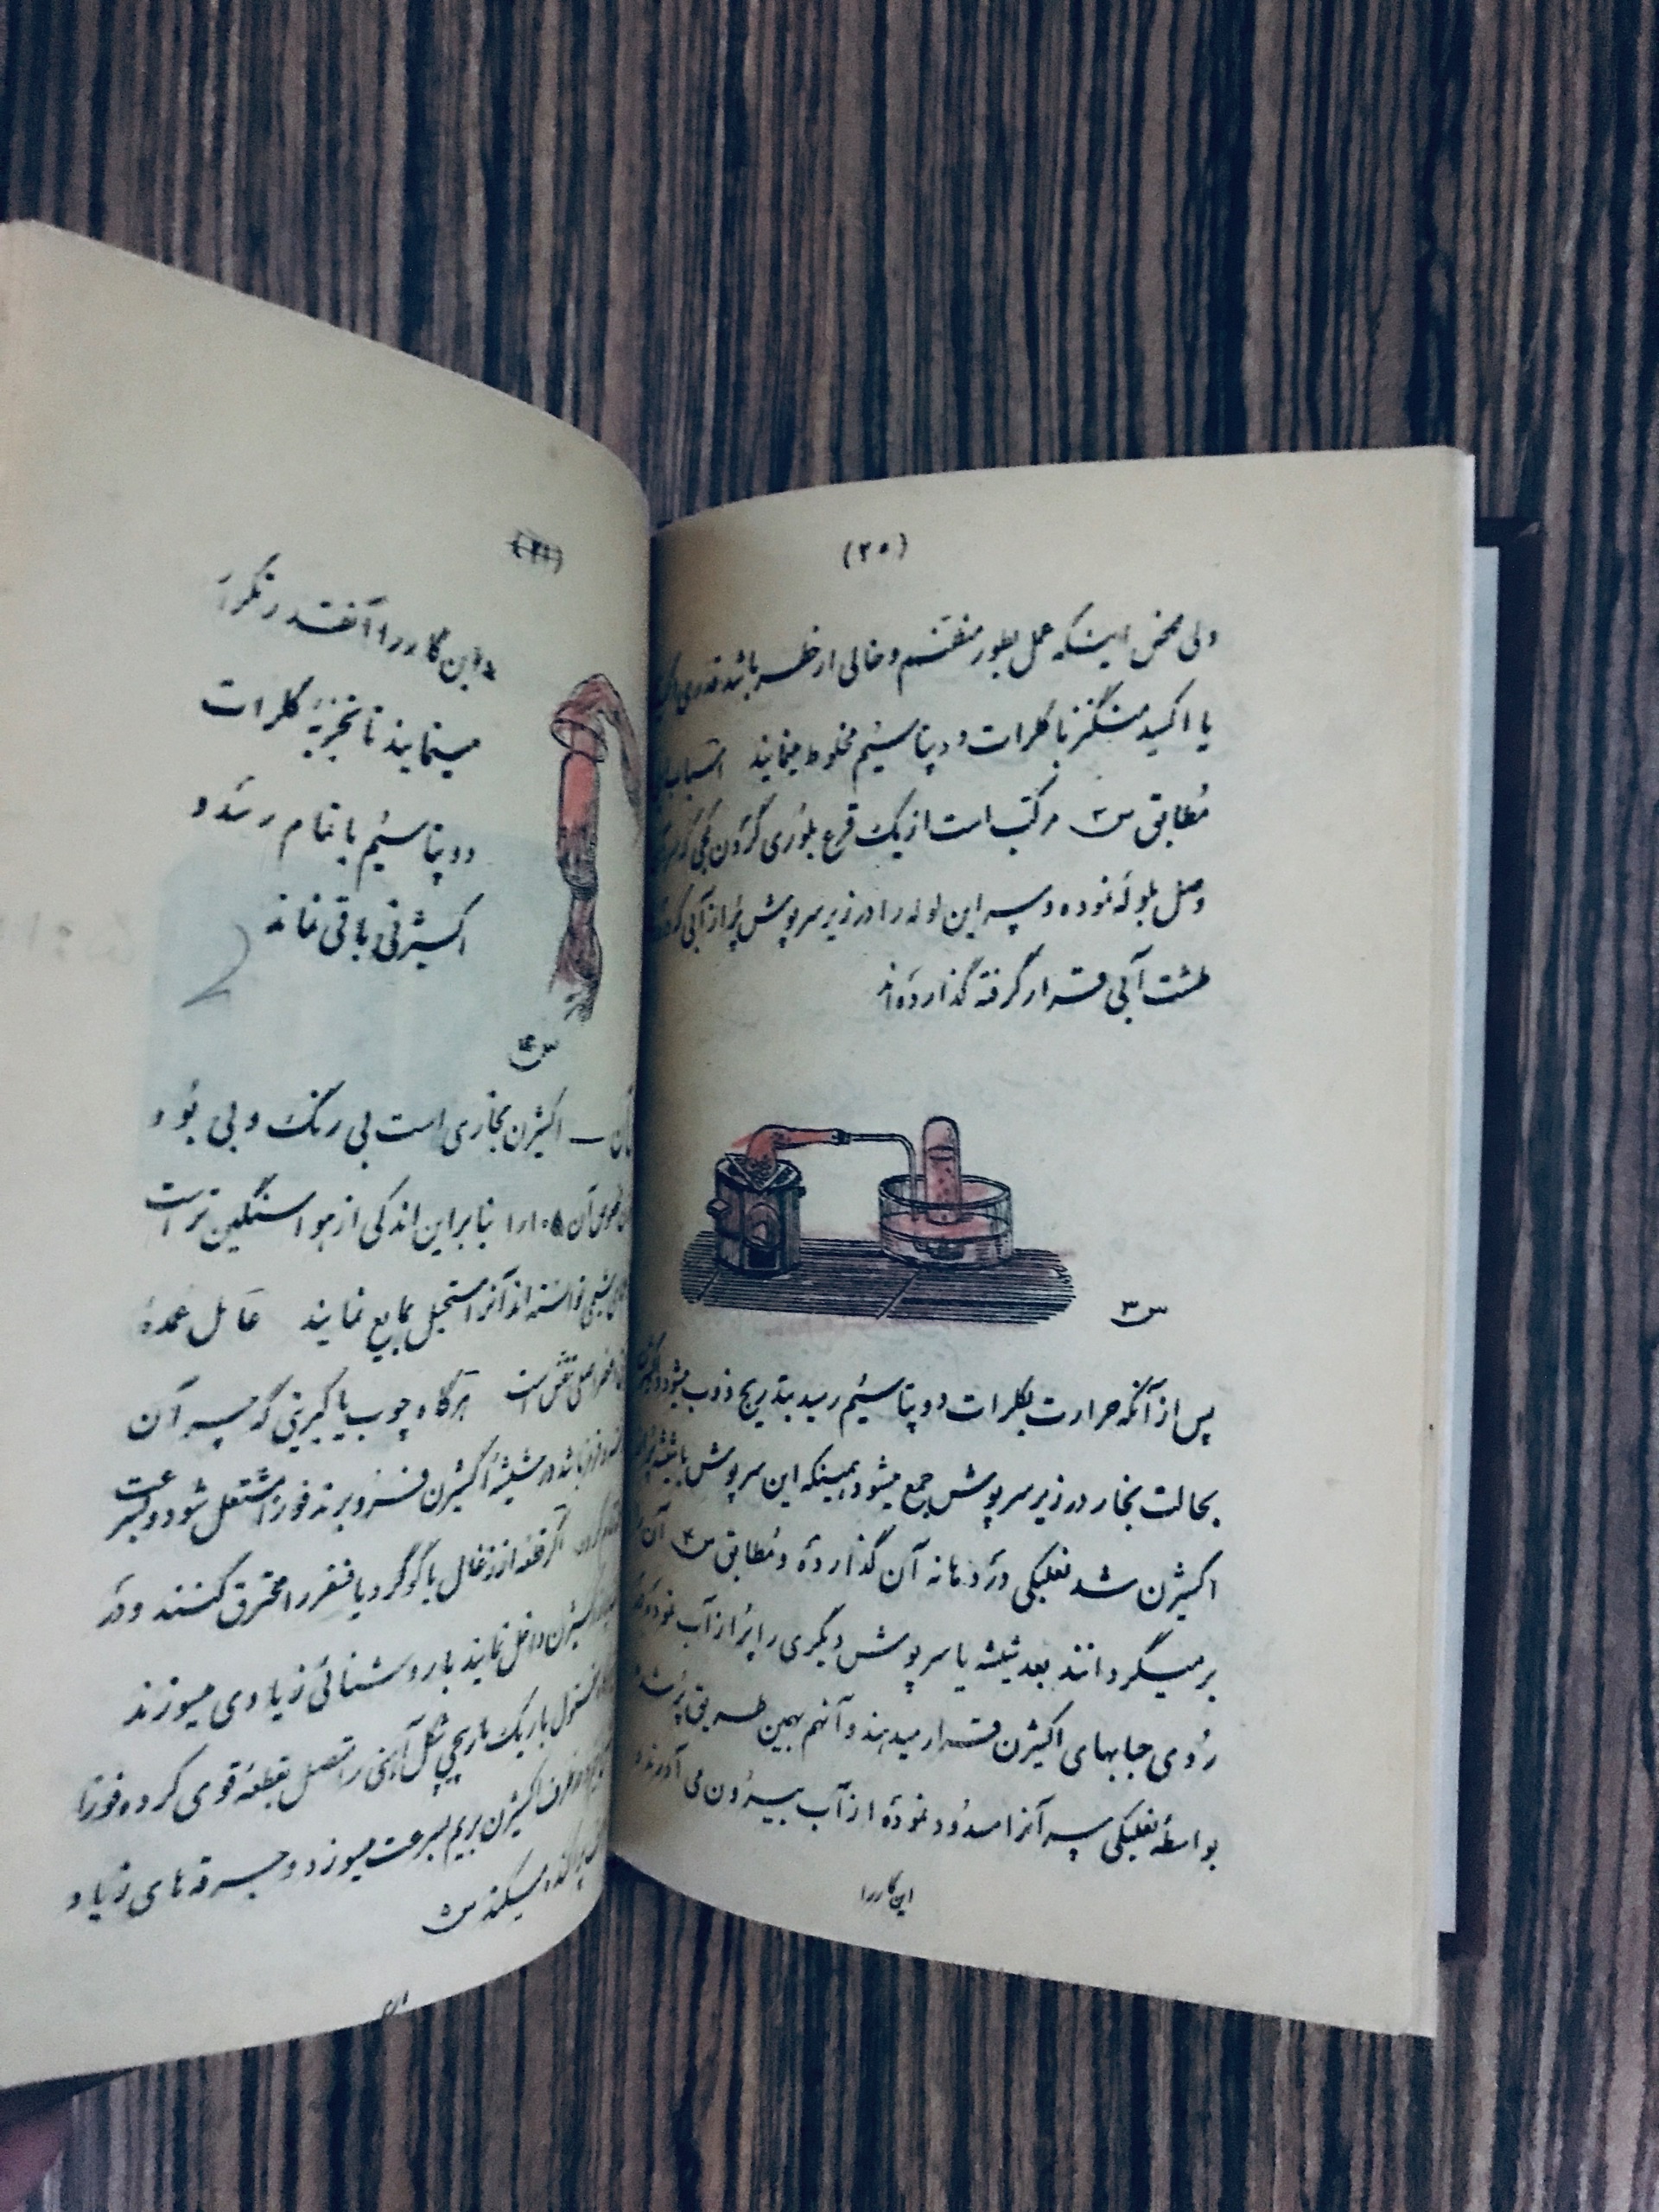 (۲۰)
ولی محض اینکه عمل بطور منظم و خالی از خطر باشد قدری
یا اکسید منگنز با کلرات دو پتاسیم مخلوط مینمایند اسباب
مطابق ش۳ مرکب است از یک قرع بلوری گردن کجی که
وصل بلوله نموده و سر این لوله را در زیر سرپوش پر از آبی که
طشت آبی قرار گرفته گذارده‌اند
ش۳
پس از آنکه حرارت بکلرات دو پتاسیم رسید بتدریج ذوب میشود و
بحالت بخار در زیر سرپوش جمع میشود همینکه این سرپوش یا شیشه پر از
اکسیژن شد نعلبکی در دهانه آن گذارده و مطابق ش۴ آن را
برمیگردانند بعد شیشه یا سرپوش دیگری را پر از آب نموده
روی حبابهای اکسیژن قرار میدهند و آنهم بهمین طریق پر شده
بواسطه نعلبکی سر آنرا مسدود نموده از آب بیرون می‌آورند و
این کار را
(۲۱)
و این کار را آنقدر تکرار
مینمایند تا تجزیه کلرات
دو پتاسیم باتمام رسد و
اکسیژنی باقی نماند
ش۴
اکسیژن بخاری است بی رنک و بی بو و
آن ۱۰۵ را بنابراین اندکی از هوا سنگین تر است
نتوانسته‌اند آنرا مستحیل بمایع نمایند عامل عمدهٔ
تنفس است هرگاه چوب یا کبریتی که سر آن
باشد در شیشه اکسیژن فرو برند فورا مشتعل شود و بسرعت
اگر قطعه از زغال یا گوگرد یا فسفر را محترق کنند و در
اکسیژن داخل نمایند با روشنائی زیادی میسوزند
باریک مارپیچی شکل آهنی را متصل بقطعه قوی کرده فورا
ظرف اکسیژن بریم بسرعت میسوزد و جرقه های زیاد
پراکنده میکند ش۵